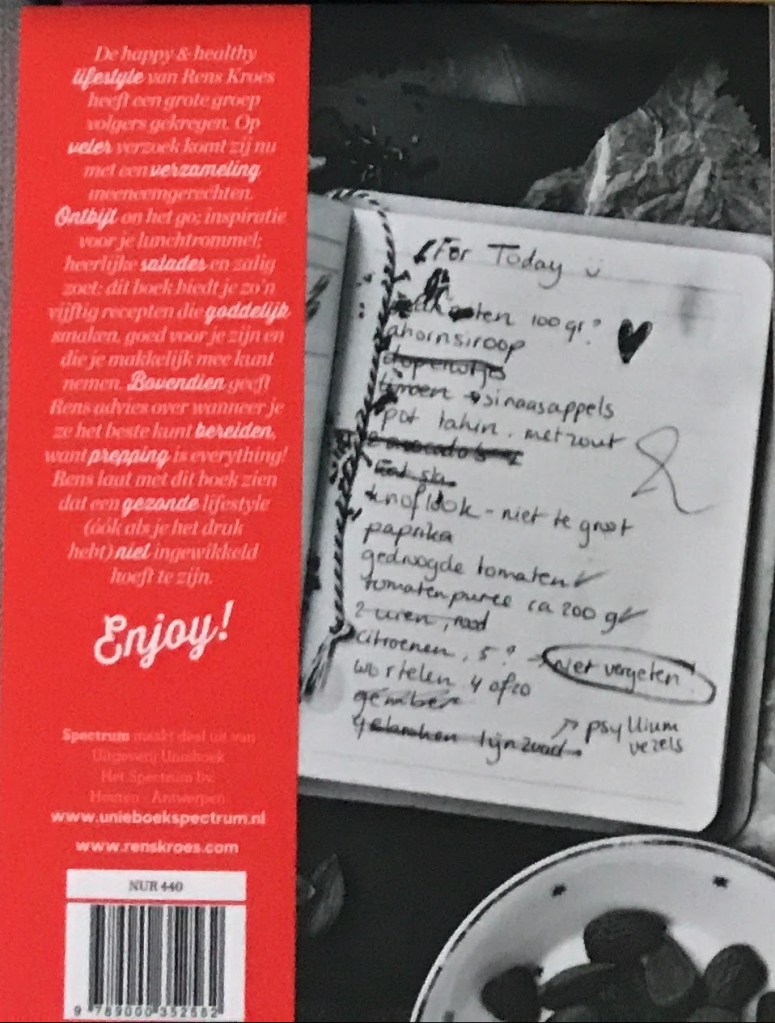 De happy & healthy
lifestyle van Rens Kroes
heeft een grote groep
volgers gekregen. Op
veler verzoek komt zij nu
met een verzameling
meeneemgerechten.
Ontbijt on het go; inspiratie
voor je lunchtrommel;
heerlijke salades en zalig
zoet: dit boek biedt je zo'n
vijftig recepten die goddelijk
smaken, goed voor je zijn en
die je makkelijk mee kunt
nemen. Bovendien geeft
Rens advies over wanneer je
ze het beste kunt bereiden,
want prepping is everything!
Rens laat met dit boek zien
dat een gezonde lifestyle
(óók als je het druk
hebt) niet ingewikkeld
hoeft te zijn.
Enjoy!
Spectrum maakt deel uit van
Uitgeverij Unieboek
Het Spectrum bv,
Houten - Antwerpen
www.unieboekspectrum.nl
www.renskroes.com
NUR 440
9 789000 352582
For Today
100 gr?
ahornsiroop
doperwtjes
limoen sinaasappels
pot tahin. met zout
2 avocado's
knoflook - niet te groot
paprika
gedroogde tomaten
tomatenpuree ca 200 g
2 uien, rood
citroenen, 5? → niet vergeten!
wortelen 4 of zo
gember
gebroken lijnzaad
psyllium
vezels